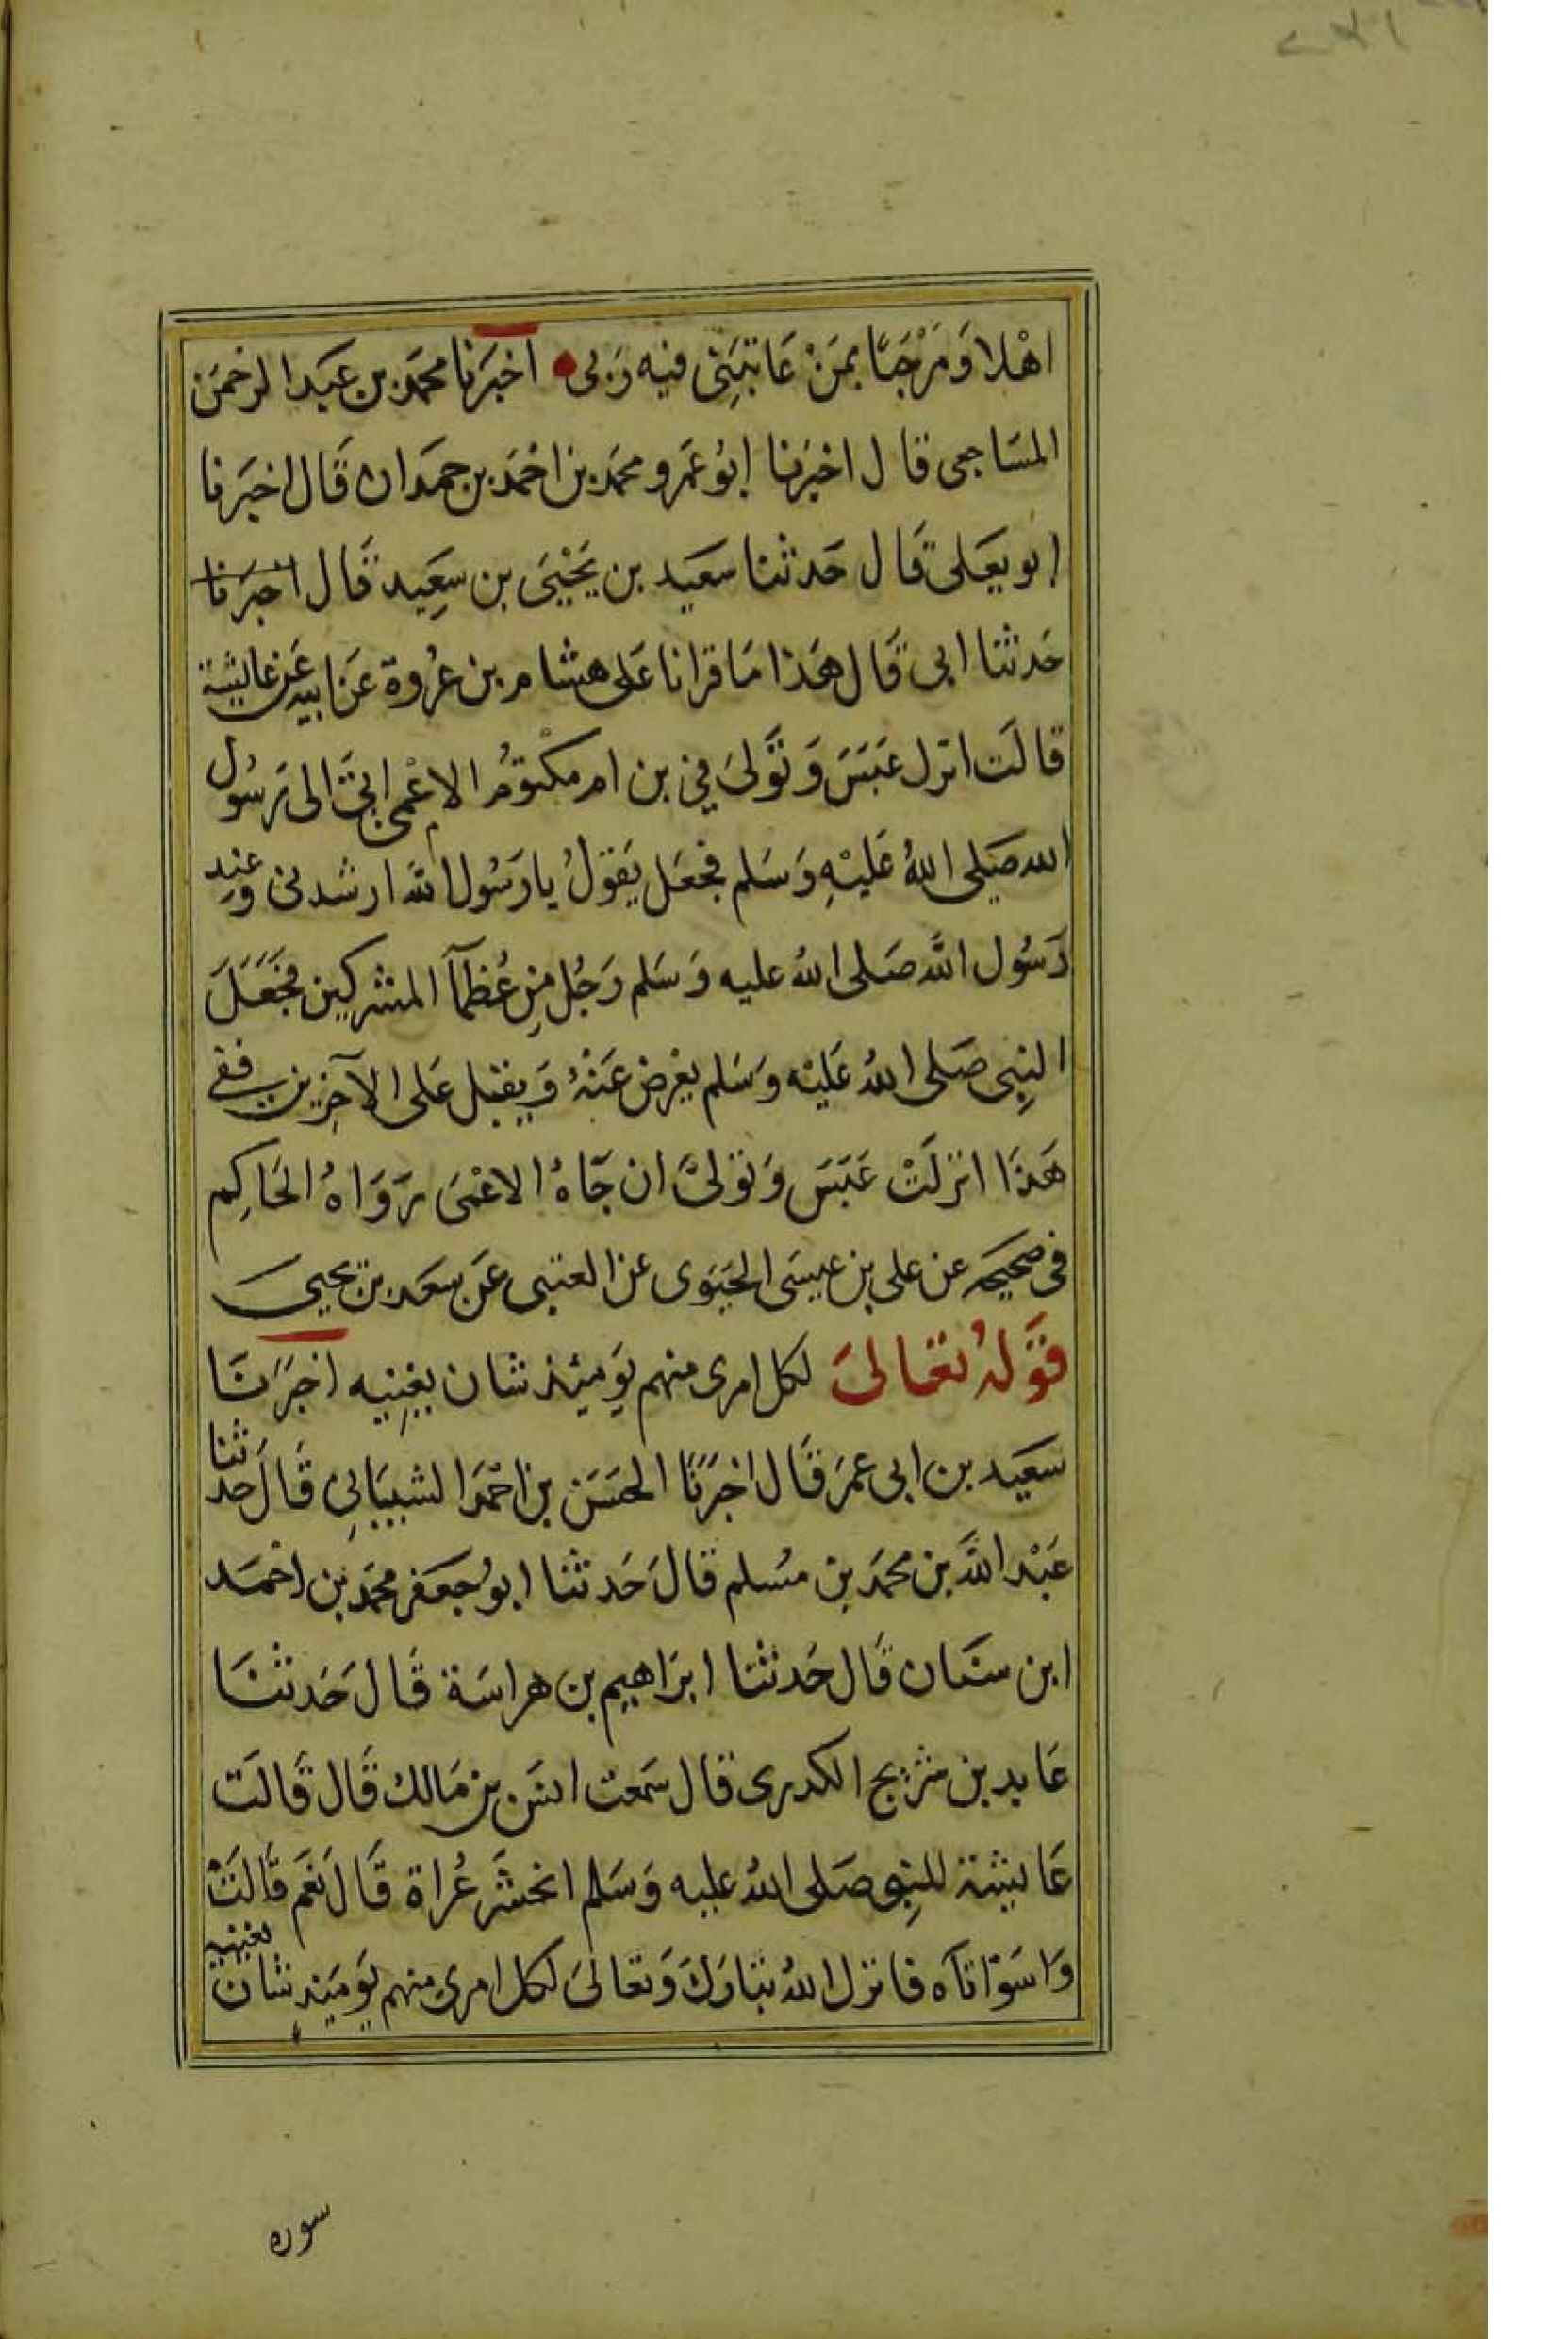 اهْلا وَمَرْحَبًا بمَنْ عَاتبَنِي فيه رَبي اخبَرنا محمَد بن عَبَد الرحمَن
المسَاجى قال اخبَرنا ابوُ عَمرو محمَد بن احمَد بن حمَدان قَال اخبَرنا
ابو يعَلى قَال حَدثنا سعَيد بن يَحْيَى بن سعِيد قَال اخبرَنا
حَدثنا ابى قَال هَذا مَا قرانا عَلى هشام بن عرُوة عَن ابيه عَن عايشة
قالَت انزل عَبَسَ وَ تَوَلىَ في بن ام مكتومُ الاعْمى اتىَ الى رَسُول
الله صَلى اللهُ عَليْهِ وَسَلم فجعَل يَقولُ يا رَسُول الله ارشدنى وعند
رَسُول اللَّه صَلى اللهُ عليه وَسَلم رَجُل مِن عُظمآ المشركين فجَعَلَ
النبِى صَلى اللهُ عَليْه وَسَلم يعْرض عَنْهُ وَيقبل عَلى الآخِرين ففى
هَذَا انزلَتْ عَبَسَ وَتولىَّ ان جَآهُ الاعْمَى رَوَاهُ الحَاكِم
فى صحيحه عن على بن عيسَى الحيَوى عن العتبى عَن سعَد بن يحيى
قوَلهُ تعَالىَ لكل امرى منهم يَوميئذ شان يغنِيه اخبَرَنَا
سعَيد بن ابى عمرَ قَال اخبَرَنَا الحسَن بن احمَد الشيبَانِى قَالَ حدثنا
عَبْد اللَّه بن محمَد بن مسُلم قالَ حَدثنا ابوُ جعَفر محمَد بن احمَد
ابن سنَان قَال حَدثنا ابرَاهيِم بن هراسَة قَالَ حَدثنَا
عَايد بن شريح الكدرى قال سَمعت انسَ بن مَالك قَال قَالَت
عَايشة للنبِى صَلى اللهُ عليه وَسَلم انحشَر عُراة قَالَ نَعَم قَالَتْ
وَاسَوْاتآه فانزل اللهُ تبَارَكَ وَتعَالىَ لكل امرىِ منهم يَوميَذ شان يغنيه
سوره